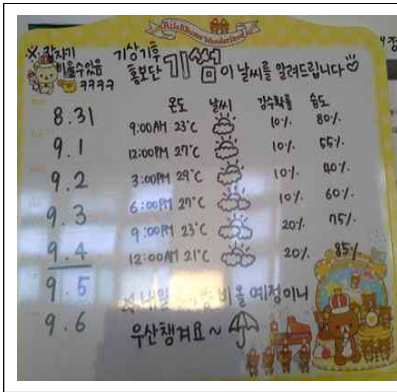 Rilakkuma Wonderland
※ 갑자기
비올수있음
ㅋㅋㅋㅋ
기상기후
홍보단 기썸이 날씨를 알려드립니다
온도 날씨 강수확률 습도
8.31
9:00AM 23℃ 10% 80%
9.1
12:00PM 27℃ 10% 55%
9.2
3:00PM 29℃ 10% 40%
9.3
6:00PM 27℃ 10% 60%
9:00PM 23℃ 20% 75%
9.4
12:00AM 21℃ 20% 85%
9.5
내일 비올 예정이니
9.6
우산챙겨요~